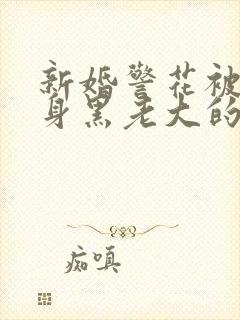 新婚警花被
身黑老大的
痴嗔